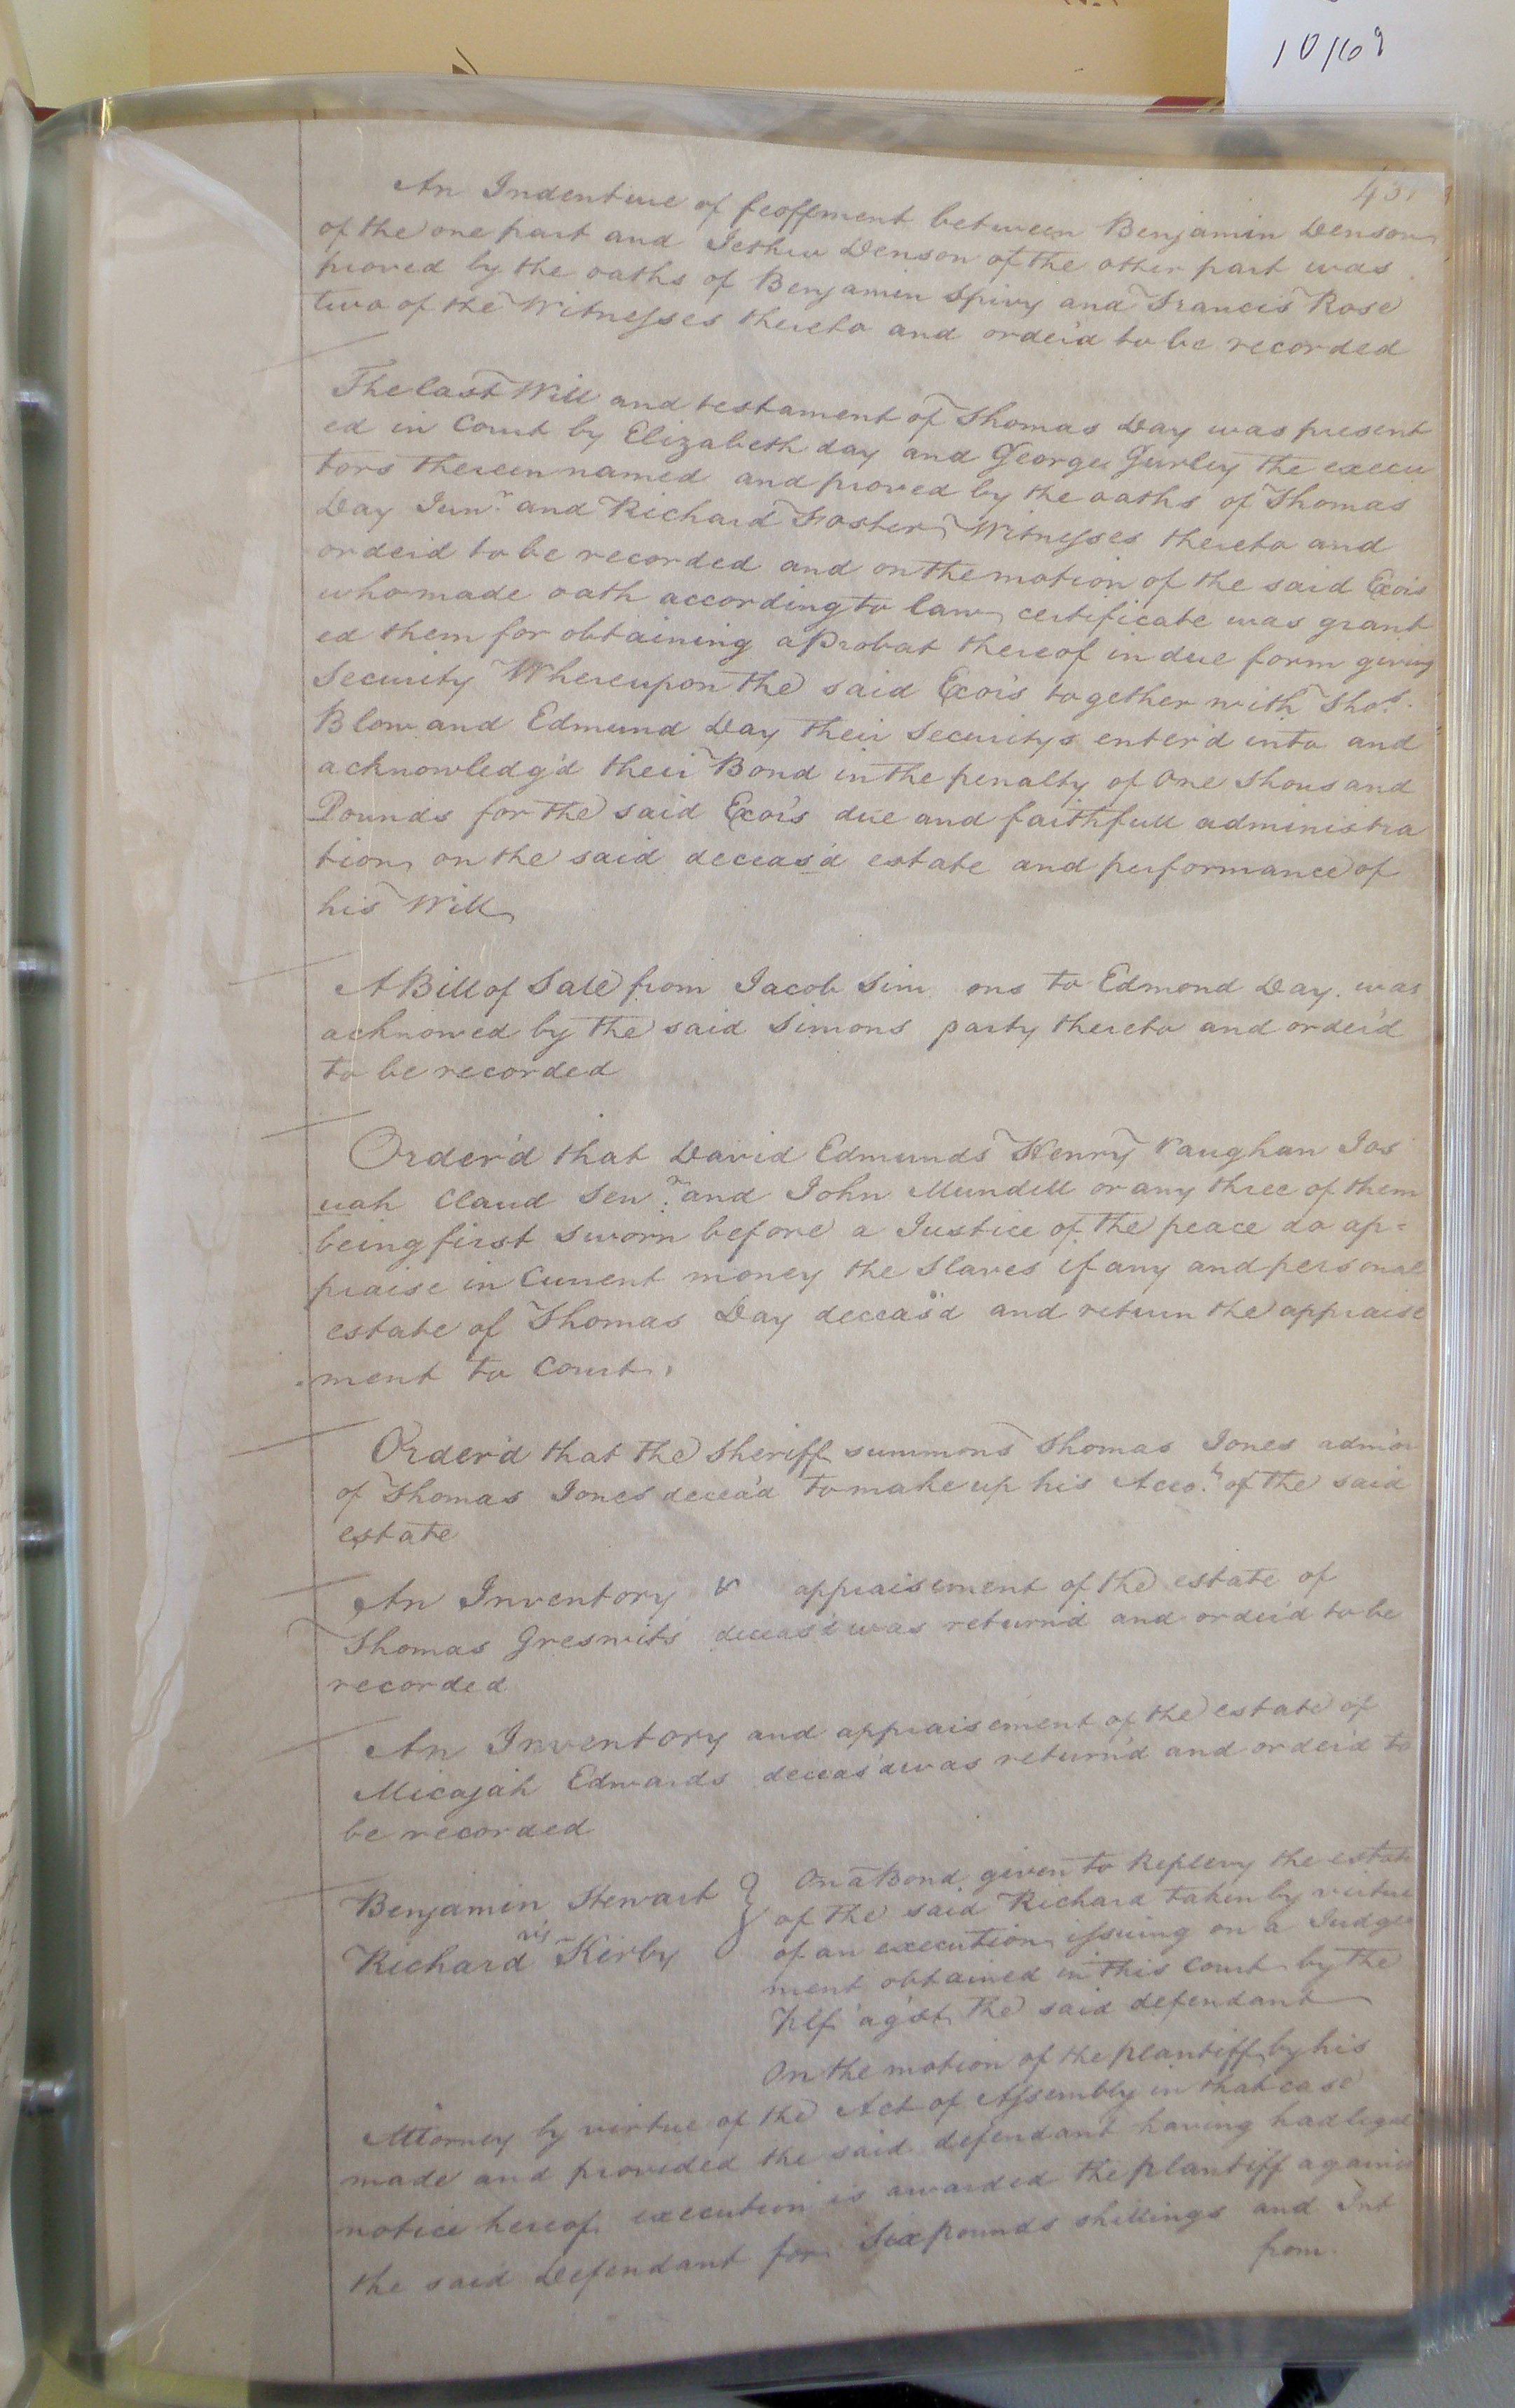 10/69
An Indenture of feoffment between Benjamin Denson
of the one part and Jethro Denson of the other part was
proved by the oaths of Benjamin Spivy and Francis Rose
two of the Witnesses thereto and order'd to be recorded
The last Will and testament of Thomas Day was present
ed in Court by Elizabeth day and George Gurley the execu
tors thereen named and proved by the oaths of Thomas
Day Junr. and Richard Foster Witnesses thereto and
order'd to be recorded and on the motion of the said Exors
who made oath according to law certificate was grant
ed them for obtaining a Probat thereof in due form giving
Security Whereupon the said Exor's together with Thos.
Blow and Edmund Day their Securitys enter'd into and
acknowledg'd their Bond in the penalty of One Thousand
Pounds for the said Exor's due and faithfull administra
tion on the said deceas'd estate and performance of
his Will
A Bill of Sale from Jacob Sim ons to Edmond Day was
acknowed by the said Simons party thereto and order'd
to be recorded
Order'd that David Edmunds Henry Vaughan Jos
uah Claud Senr. and John Mundell or any three of them
being first sworn before a Justice of the peace do ap=
praise in Current money the Slaves if any and personal
estate of Thomas Day deceas'd and return the appraise
ment to Court
Order'd that the Sheriff summons Thomas Jones admor
of Thomas Jones decea'd to make up his Accot. of the said
estate
An Inventory & appraisement of the estate of
Thomas Greswits deceas'd was return'd and order'd to be
recorded
An Inventory and appraisement of the estate of
Micajah Edwards deceas'd was return'd and order'd to
be recorded
Benjamin Stewart
vs
Richard Kirby
On a Bond given to Replevy the estate
of the said Richard taken by virtue
of an execution issuing on a Judge
ment obtained in this Court by the
Plf ag'st the said defendant
On the motion of the plantiff by his
Attorney by virtue of the Act of Assembly in that case
made and provided the said defendant having had legal
notice hereof execution is awarded the plantiff against
the said Defendant for Six pounds shillings and Int
from